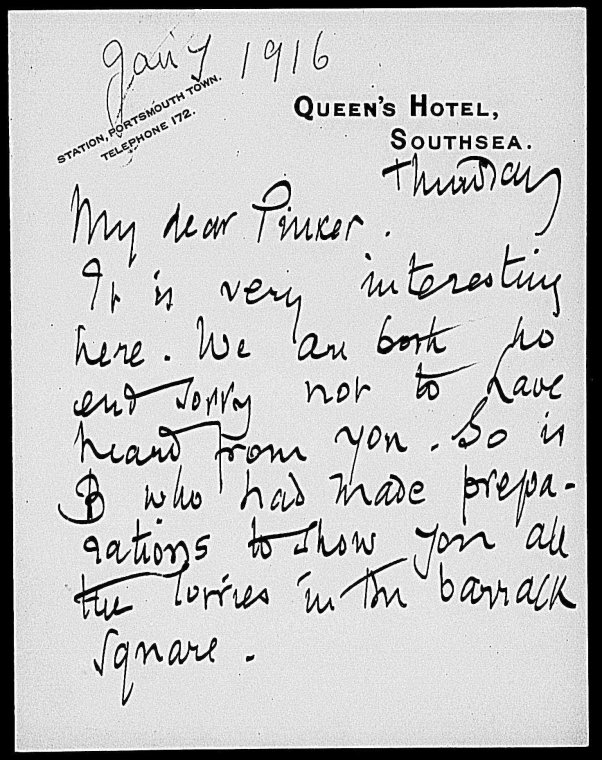 Jan 7 1916
STATION, PORTSMOUTH TOWN.
TELEPHONE 172.
QUEEN'S HOTEL,
SOUTHSEA.
Thursday
My dear Pinker.
It is very interesting
here. We are both no
end sorry not to have
heard from you. So is
B who had made prepa-
rations to show you all
the lorries in the barrack
square.